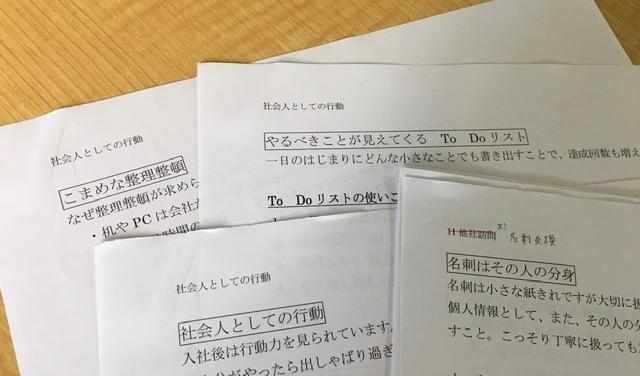 社会人としての行動
こまめな整理整頓
なぜ整理整頓が求めら
・机や PC は会社か
社会人としての行動
やるべきことが見えてくる To Do リスト
一日のはじまりにどんな小さなことでも書き出すことで、達成回数も増え
To Do リストの使いこ
社会人としての行動
社会人としての行動
入社後は行動力を見られています。
自分がやったら出しゃばり過ぎ
11 他社訪問
名刺交換
名刺はその人の分身
名刺は小さな紙きれですが大切に扱
個人情報として、また、その人の分
すこと。こっそり丁寧に扱っても